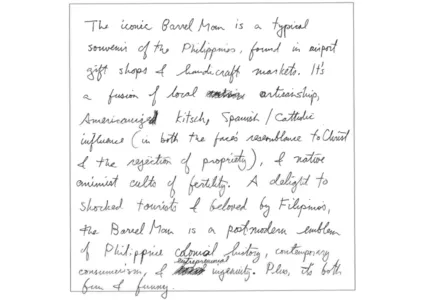 The iconic Barrel Man is a typical
souvenir of the Philippines, found in airport
gift shops & handicraft markets. It's
a fusion of local artisanship,
Americanized kitsch, Spanish / Catholic
influence (in both the face's resemblance to Christ
& the rejection of propriety), & native
animist cults of fertility. A delight to
shocked tourists & beloved by Filipinos,
the Barrel Man is a postmodern emblem
of Philippine colonial history, contemporary
entrepreneurial
consumerism, & ingenuity. Plus, its both
fun & funny.